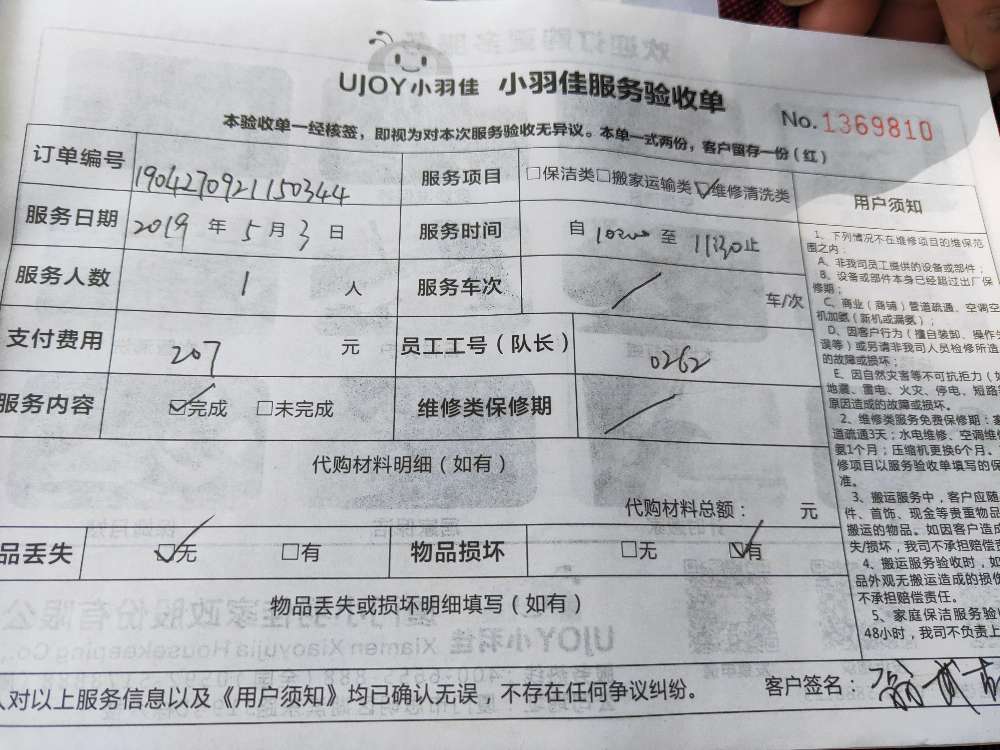 UJOY小羽佳 小羽佳服务验收单
No.1369810
本验收单一经核签，即视为对本次服务验收无异议。本单一式两份，客户留存一份（红）
订单编号 190427092115034 4 服务项目 □保洁类□搬家运输类☑维修清洗类 用户须知
服务日期 2019 年 5 月 3 日 服务时间 自 10:00 至 11:30 止
服务人数 1 人 服务车次 / 车/次
支付费用 207 元 员工工号（队长） 0262
服务内容 ☑完成 □未完成 维修类保修期 /
代购材料明细（如有）
代购材料总额： 元
品丢失 ☑无 □有 物品损坏 □无 ☑有
物品丢失或损坏明细填写（如有）
人对以上服务信息以及《用户须知》均已确认无误，不存在任何争议纠纷。 客户签名：
1、下列情况不在维修项目的维保范
围之内：
A、非我司员工提供的设备或部件；
B、设备或部件本身已经超过出厂保
修期；
C、商业（商铺）管道疏通、空调空
机加氨（新机或漏氨）；
D、因客户行为（擅自装卸、操作失
误等）或另请非我司人员检修所造
的故障或损坏；
E、因自然灾害等不可抗拒力（如
地震、雷电、火灾、停电、短路等
原因造成的故障或损坏。
2、维修类服务免费保修期：家
道疏通3天；水电维修、空调维修
氨1个月；压缩机更换6个月。
修项目以服务验收单填写的保
准。
3、搬运服务中，客户应随
件、首饰、现金等贵重物品
搬运的物品。如因客户造成
失/损坏，我司不承担赔偿责
4、搬运服务验收时，如
品外观无搬运造成的损伤
不承担赔偿责任。
5、家庭保洁服务验收
48小时，我司不负责上